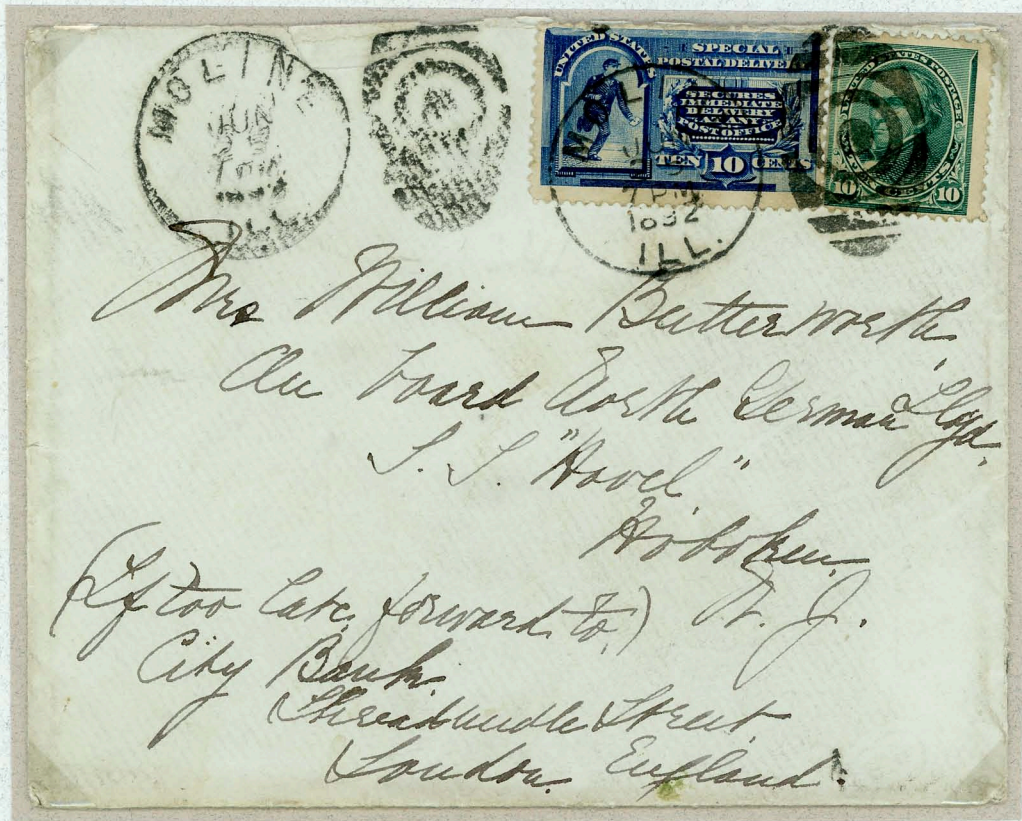 MOLINE
JUN
ILL
UNITED STATES
SPECIAL
POSTAL DELIVERY
SECURES
IMMEDIATE
DELIVERY
AT ANY
POST OFFICE
TEN 10 CENTS
7 PM
1892
ILL.
UNITED STATES POSTAGE
10 10
Mrs William Butterworth
On board North German Lloyd.
S. S. "Havel"
Hoboken.
N. J.
(If too late, forward to)
City Bank.
Threadneedle Street.
London. England.